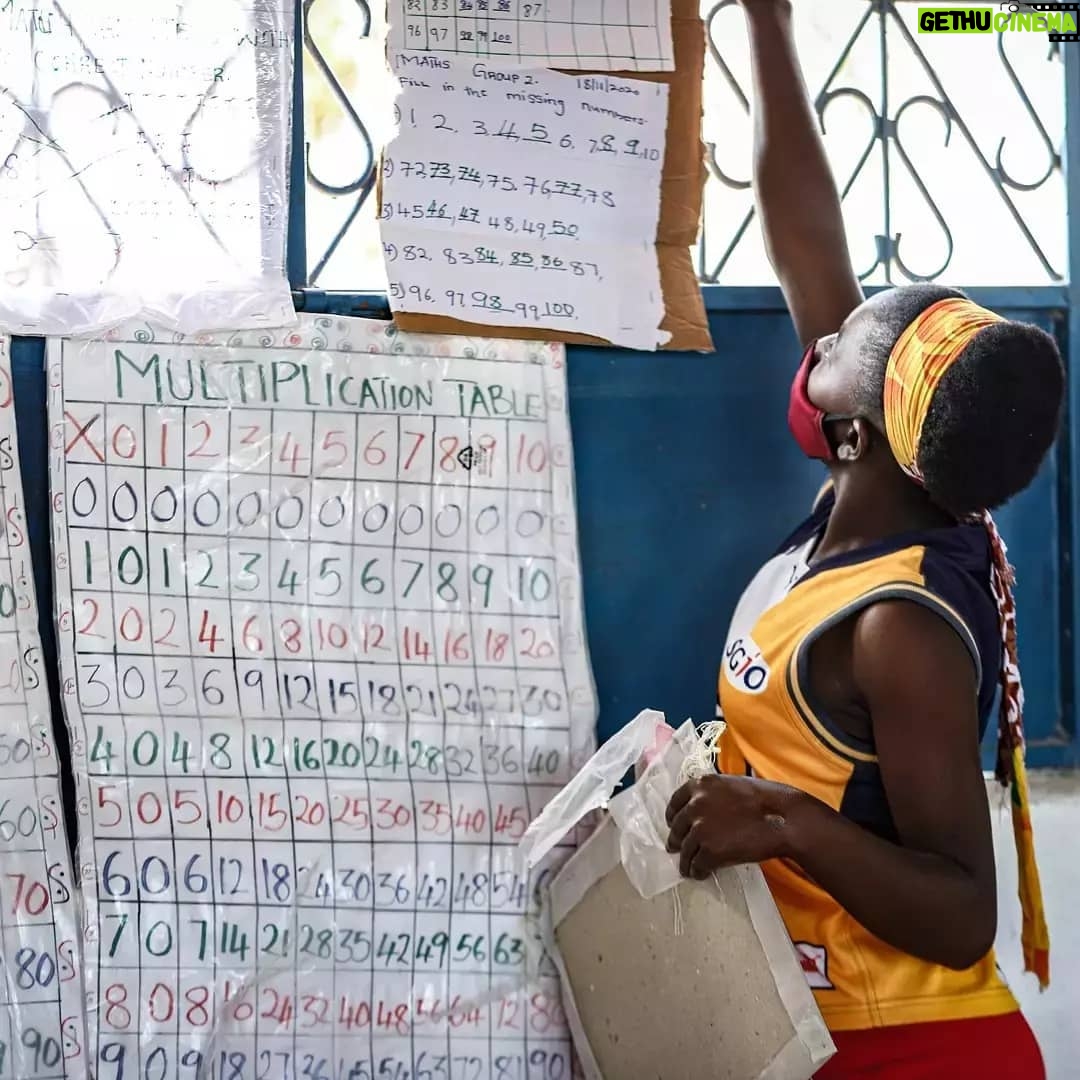 GETHUCINEMA
CORRECT NUMBER.
82 83 84 85 86 87
96 97 98 99 100
MATHS GROUP 2. 18/11/2020
Fill in the missing numbers.
1) 1, 2, 3, 4, 5, 6, 7, 8, 9, 10
2) 72, 73, 74, 75, 76, 77, 78
3) 45, 46, 47, 48, 49, 50.
4) 82, 83, 84, 85, 86, 87,
5) 96, 97, 98, 99, 100.
MULTIPLICATION TABLE
X 0 1 2 3 4 5 6 7 8 9 10
0 0 0 0 0 0 0 0 0 0 0 0
1 0 1 2 3 4 5 6 7 8 9 10
2 0 2 4 6 8 10 12 14 16 18 20
3 0 3 6 9 12 15 18 21 24 27 30
4 0 4 8 12 16 20 24 28 32 36 40
5 0 5 10 15 20 25 30 35 40 45
6 0 6 12 18 24 30 36 42 48 54
7 0 7 14 21 28 35 42 49 56 63
8 0 8 16 24 32 40 48 56 64 72 80
9 0 9 18 27 36 45 54 63 72 81 90
60
70
80
90